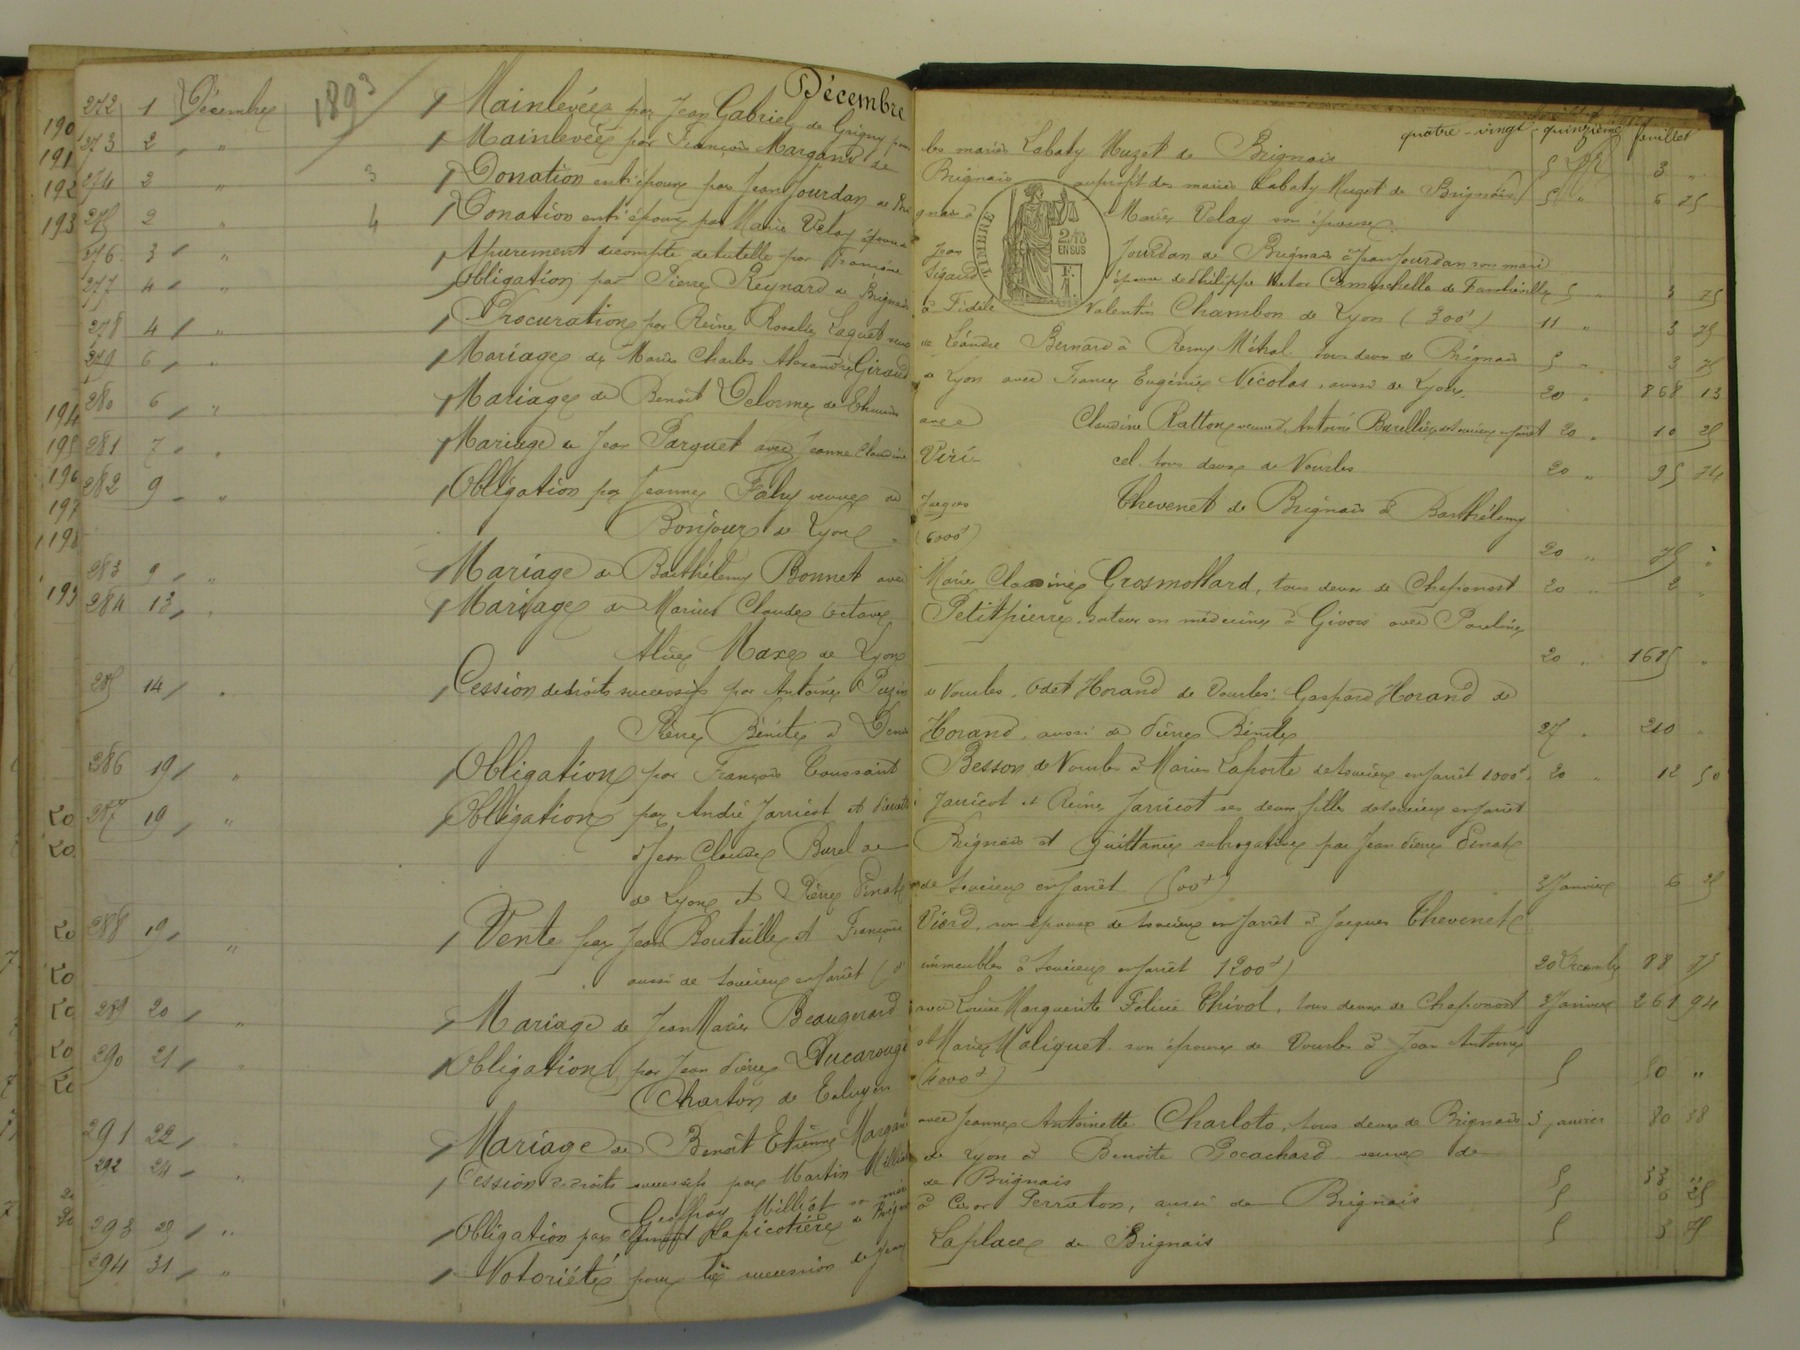 Décembre
quatre-vingt-quinzième feuillet
272 1 Décembre 1893 Mainlevée par Jean Gabriel de Grigny pour les mariés Labaty Muzet de Brignais 5 3 "
273 2 " Mainlevée par François Margand de Brignais au profit des mariés Labaty Muzet de Brignais 5 " 6 25
274 2 " 3 Donation entre époux par Jean Jourdan de Brignais à Marie Velay son épouse
275 2 " 4 Donation entre époux par Marie Velay épouse Jean Jourdan de Brignais à Jean Jourdan son mari
276 3 " Apurement de compte de tutelle par Françoise Sigaud épouse de Philippe Victor Camuschella de 5 " 3 75
277 4 " Obligation par Pierre Reynard de Brignais à Fidèle Valentin Chambon de Lyon (300f) 11 " 3 75
278 4 " Procuration par Reine Rosalie Laquet veuve de Léandre Bernard à Remy Métral tous deux de Brignais 5 " 3 75
279 6 " Mariage de Marie Charles Alexandre Giraud à Lyon avec France Eugénie Nicolas, aussi de Lyon 20 " 868 13
280 6 " Mariage de Benoît Delorme de avec Claudine Ratton veuve d'Antoine Burellier de Soucieu en Jarret 20 " 10 25
281 7 " Mariage de Jean Parquet avec Jeanne Claudine Viricel tous deux de Vourles 20 " 95 74
282 9 " Obligation par Jeanne Fahy veuve de Jacques Thevenet de Brignais à Barthélemy
Bonjour de Lyon (6000f) 20 " 75 "
283 9 " Mariage de Barthélemy Bonnet avec Marie Claudine Grosmollard, tous deux de Chaponost 20 " 2 "
284 13 " Mariage de Marius Claude Octave Petitpierre docteur en médecine à Givors avec Pauline
Alice Marce de Lyon 20 " 1685 "
285 14 " Cession de droits successifs par Antoine Puzin de Vourles, Odet Horand de Vourles. Gaspard Horand de
Pierre Bénite à Denis Horand, aussi de Pierre Bénite 27 " 210 "
286 19 " Obligation par François Toussaint Besson de Vourles à Marie Laporte de Soucieu en Jarret 1000f. 20 " 12 50
287 19 " Obligation par André Jarricot et Pierrette Jarricot et Reine Jarricot ses deux filles de Soucieu en Jarret
à Jean Claude Burel de Brignais et Quittance subrogative par Jean Pierre Pinate
de Lyon et Pierre Pinate de Soucieu en Jarret (500f) 3 Janvier 6 25
288 19 " Vente par Jean Bouteille et Françoise Viard, son épouse de Soucieu en Jarret à Jacques Thevenet
aussi de Soucieu en Jarret immeubles à Soucieu en Jarret 1200f) 20 Décembre 88 75
289 20 " Mariage de Jean Marie Beaugirard avec Louise Marguerite Félicie Thivol, tous deux de Chaponost 3 Janvier 261 94
290 21 " Obligation par Jean Pierre Ducarouge et Marie Maliquet son épouse de Vourles à Jean Antoine
Charton de Taluyers (4000f) 5 50 "
291 22 " Mariage de Benoît Etienne Margand avec Jeanne Antoinette Charloto, tous deux de Brignais 3 janvier 80 38
292 24 " Cession de droits successifs par Martin Milliat de Lyon à Benoite Pocachard veuve de
Geoffray Milliat de Brignais 5 33 "
293 29 " Obligation par Lapicotière de Brignais à César Perraton, aussi de Brignais 5 6 25
294 31 " Notoriété pour la succession de Jean Laplace de Brignais 5 3 75
TIMBRE
2/10 EN SUS
190
191
192
193
194
195
196
197
198
199